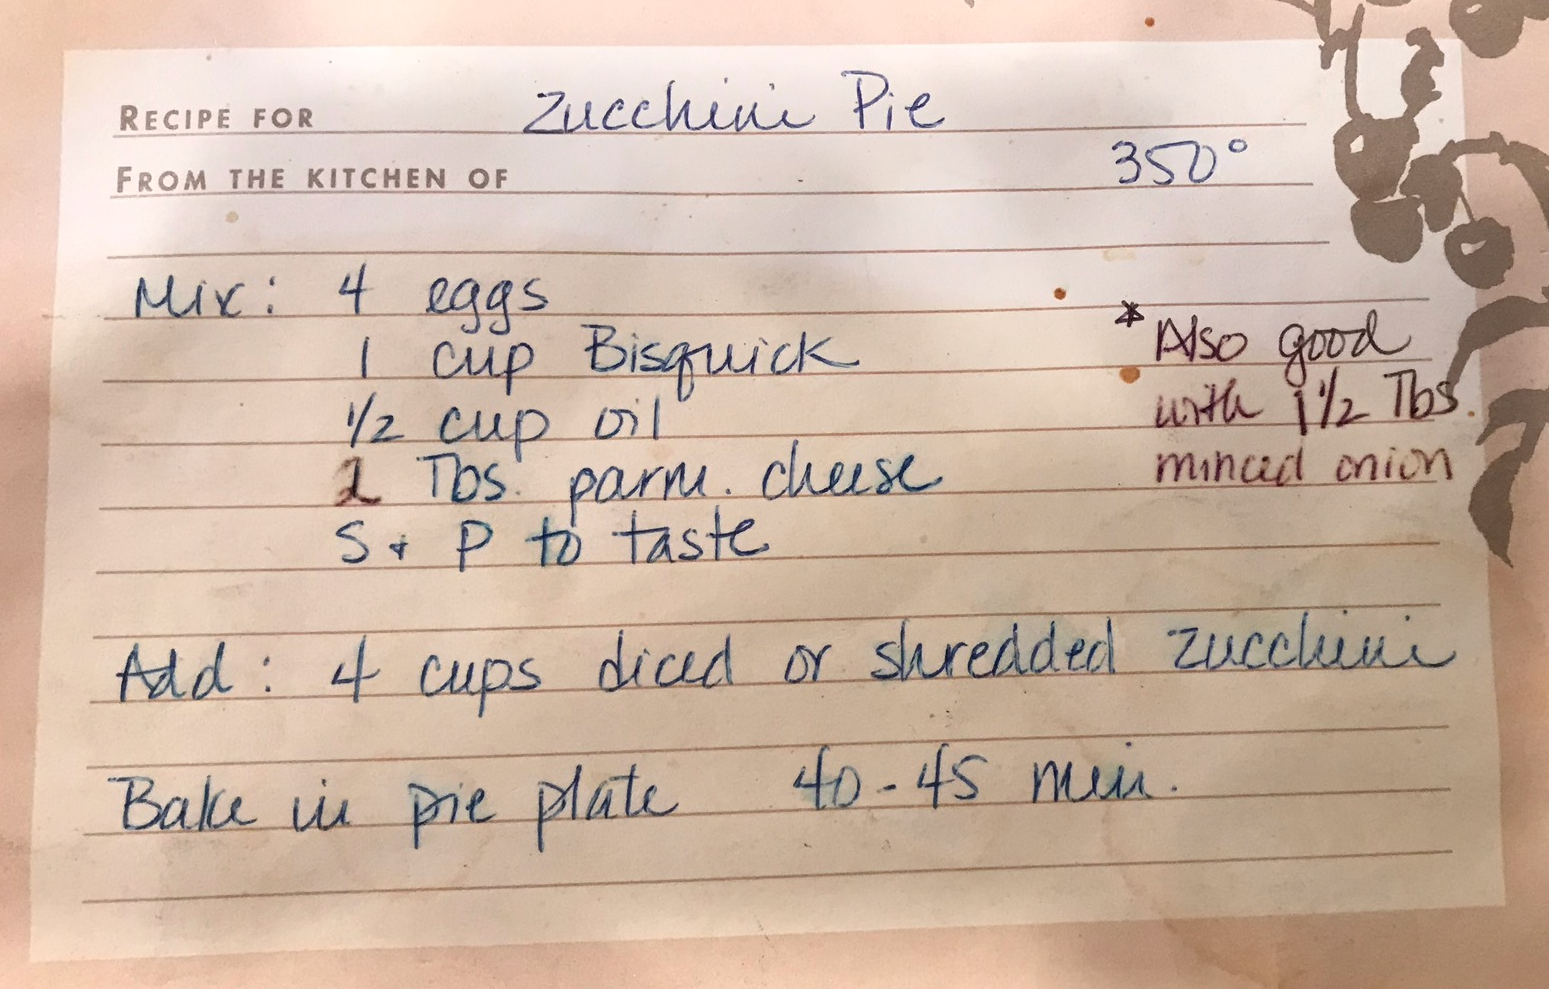 RECIPE FOR Zucchini Pie
FROM THE KITCHEN OF 350°
Mix: 4 eggs
1 cup Bisquick
1/2 cup oil
2 Tbs. parm. cheese
S + P to taste
* Also good
with 1 1/2 Tbs.
minced onion
Add: 4 cups diced or shredded zucchini
Bake in pie plate 40-45 min.